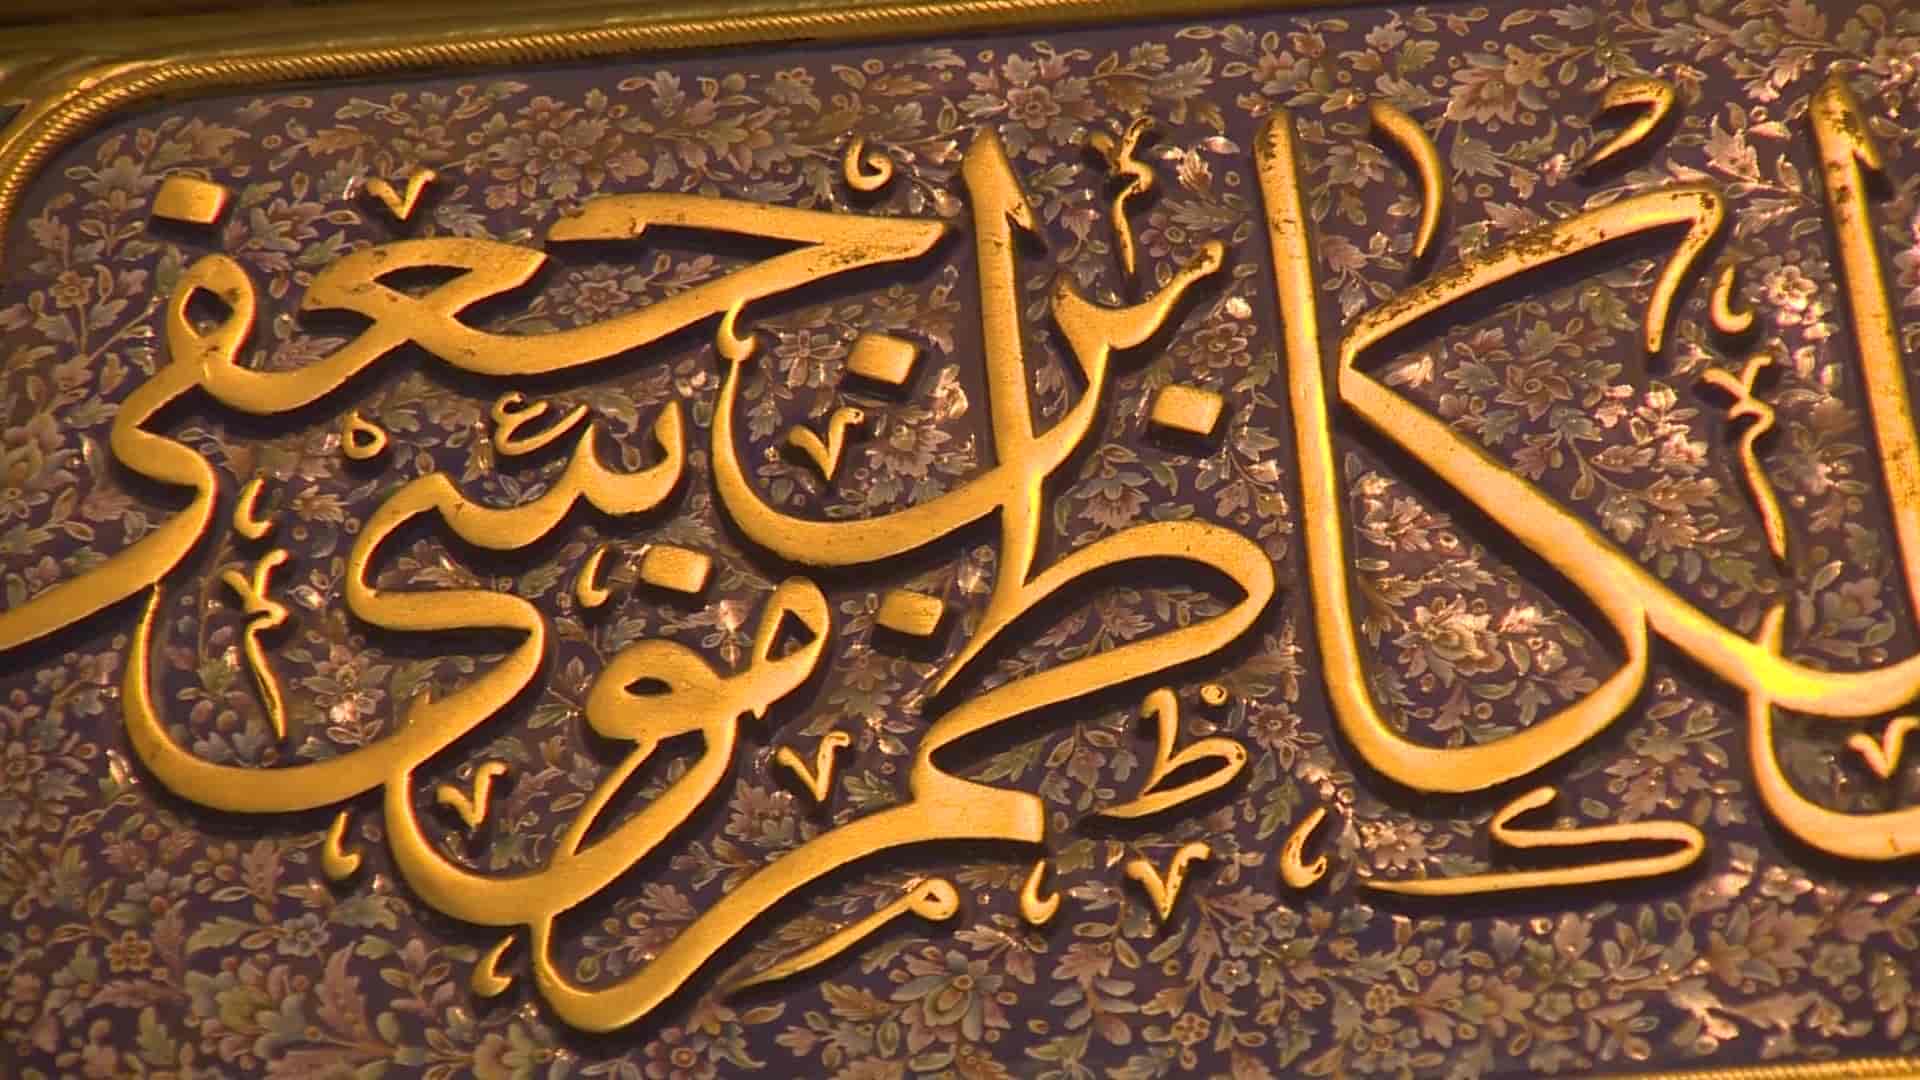 الكاظم موسى بن جعفر